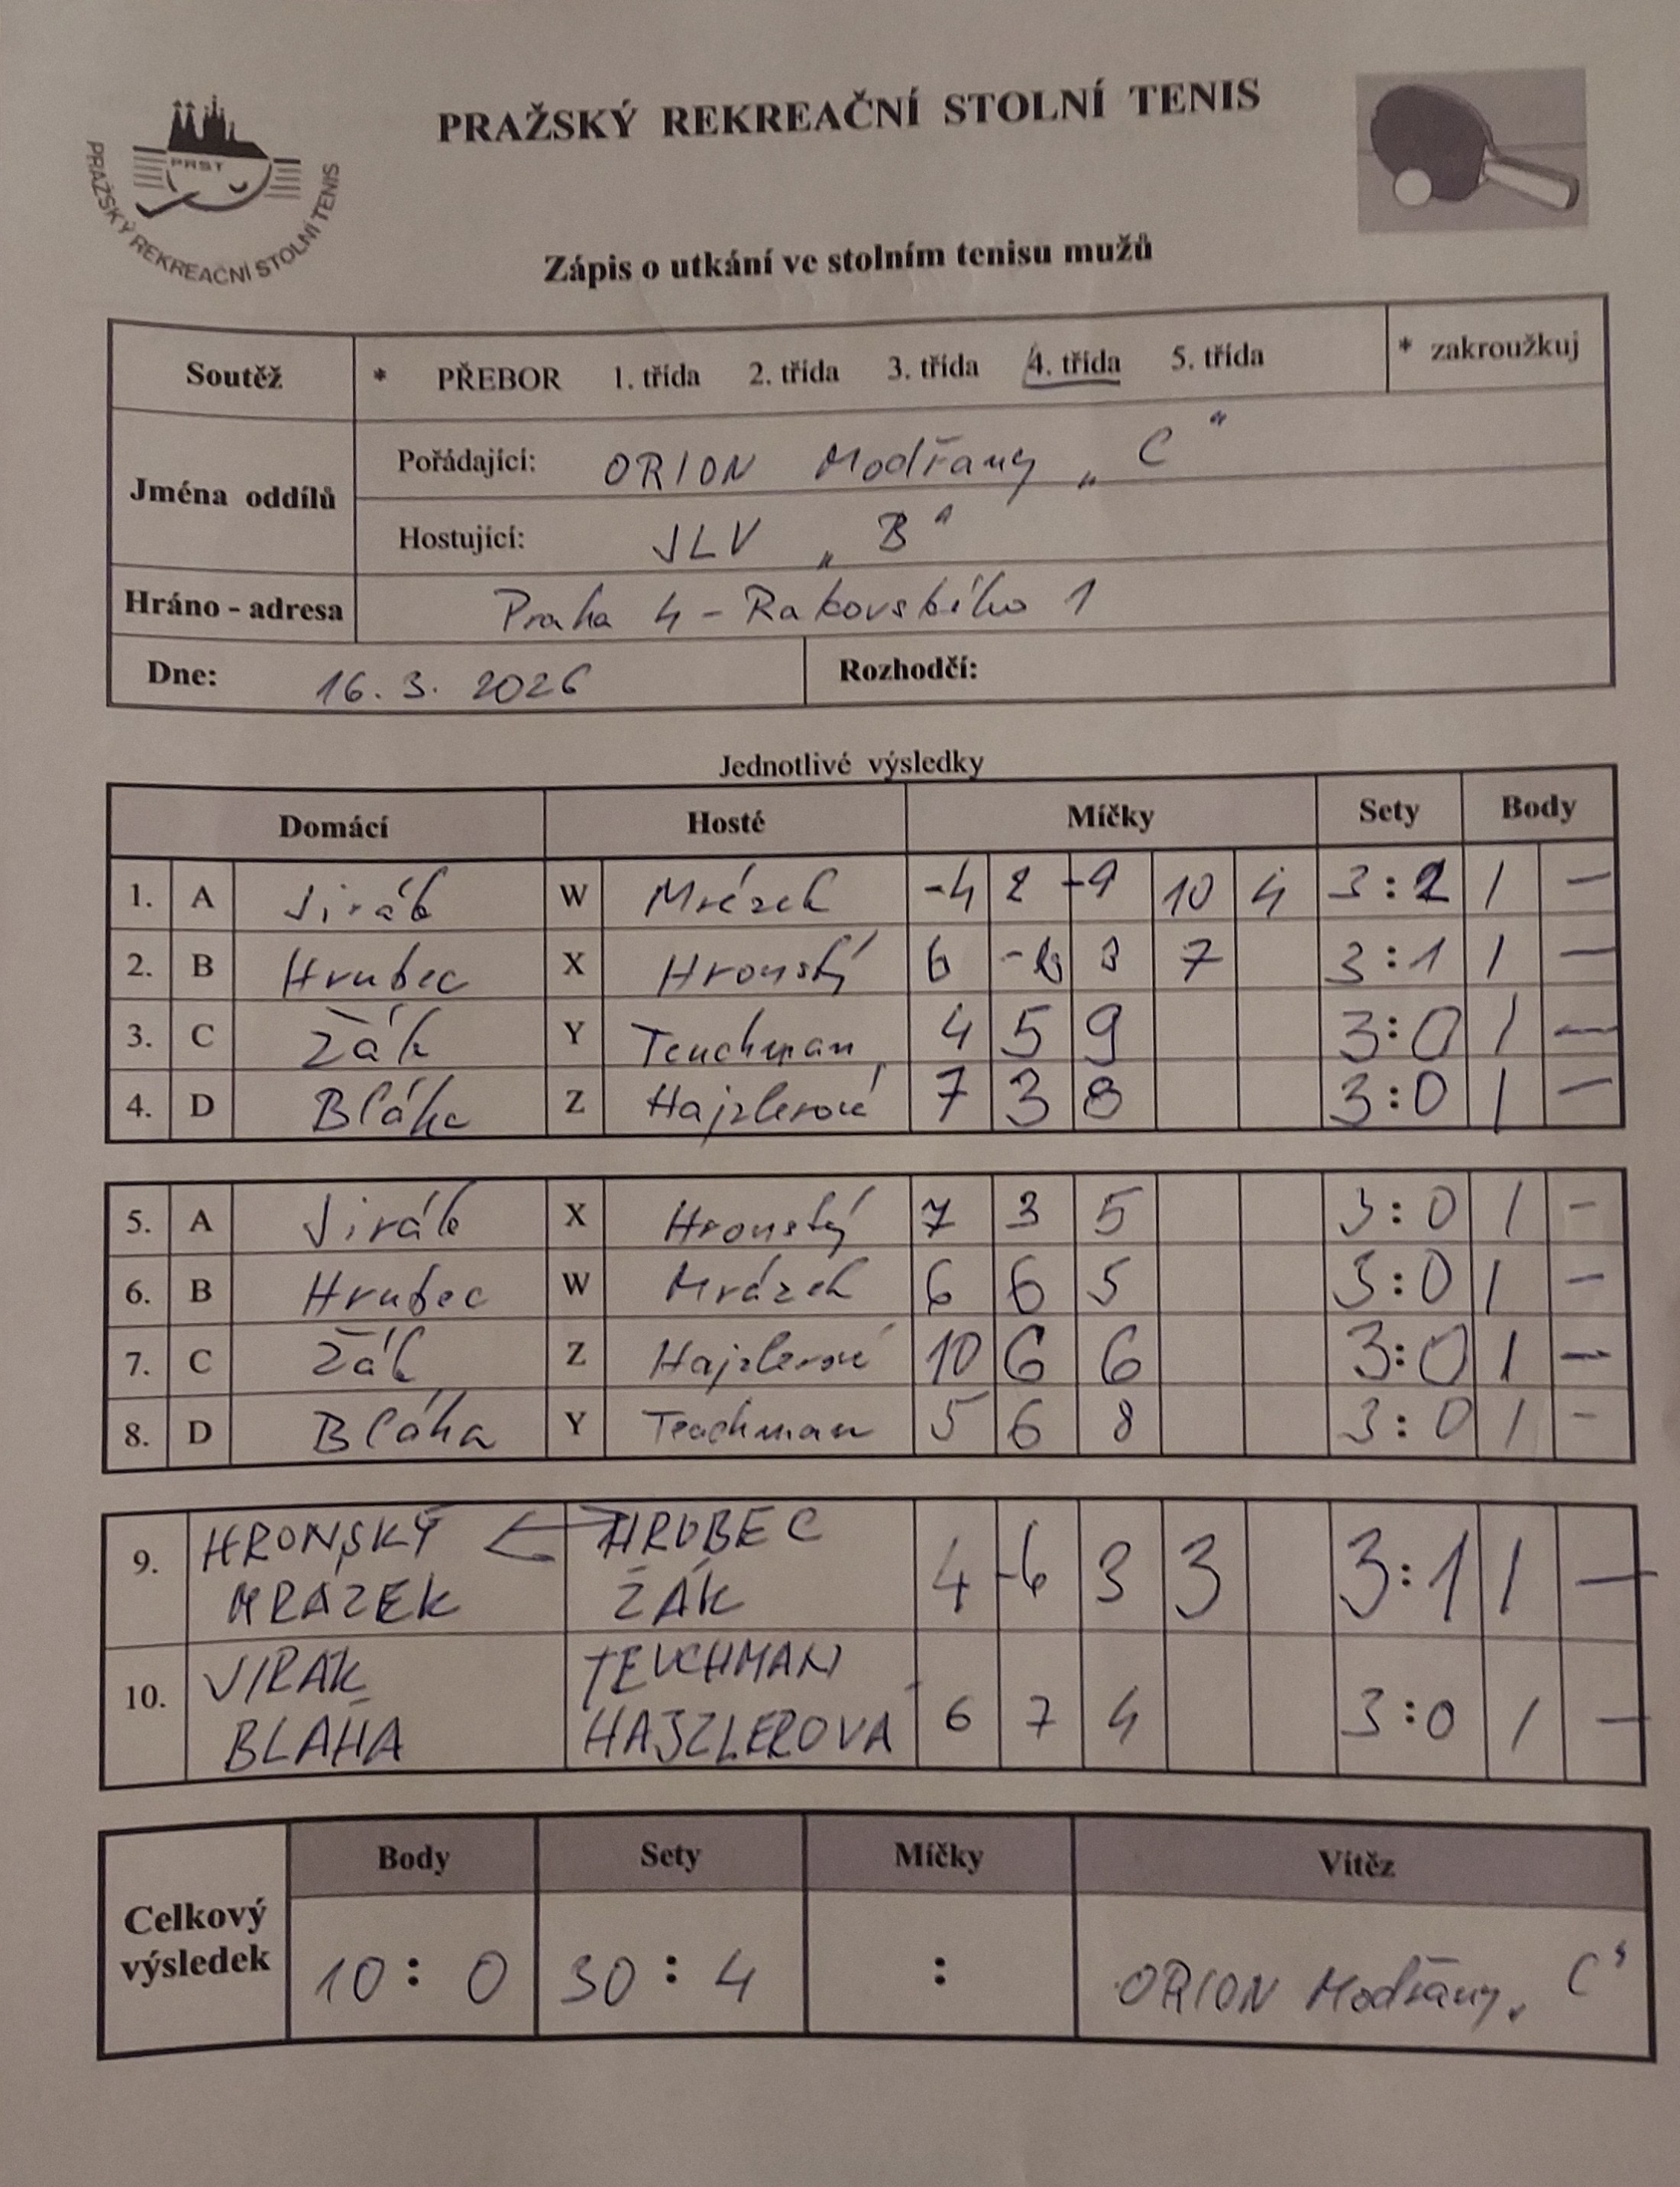 PRAŽSKÝ REKREAČNÍ STOLNÍ TENIS
PRST
PRAŽSKÝ REKREAČNÍ STOLNÍ TENIS
Zápis o utkání ve stolním tenisu mužů
Soutěž * PŘEBOR 1. třída 2. třída 3. třída 4. třída 5. třída * zakroužkuj
Jména oddílů
Pořádající: ORION Modřany „C"
Hostující: JLV „B"
Hráno - adresa Praha 4 - Rakovského 1
Dne: 16. 3. 2026 Rozhodčí:
Jednotlivé výsledky
Domácí Hosté Míčky Sety Body
1. A Jirák W Mrázek -4 2 -9 10 4 3:2 1 –
2. B Hrubec X Hronský 6 3 7 3:1 1 –
3. C Žák Y Teuchman 4 5 9 3:0 1 –
4. D Bláha Z Hajzlerová 7 3 8 3:0 1 –
5. A Jirák X Hronský 7 3 5 3:0 1 –
6. B Hrubec W Mrázek 6 6 5 3:0 1 –
7. C Žák Z Hajzlerová 10 6 6 3:0 1 –
8. D Bláha Y Teuchman 5 6 8 3:0 1 –
9. HRONSKÝ HRUBEC 4 -6 3 3 3:1 1 –
MRÁZEK ŽÁK
10. JIRÁK TEUCHMAN 6 7 4 3:0 1 –
BLÁHA HAJZLEROVÁ
Body Sety Míčky Vítěz
Celkový výsledek 10 : 0 30 : 4 : ORION Modřany „C"